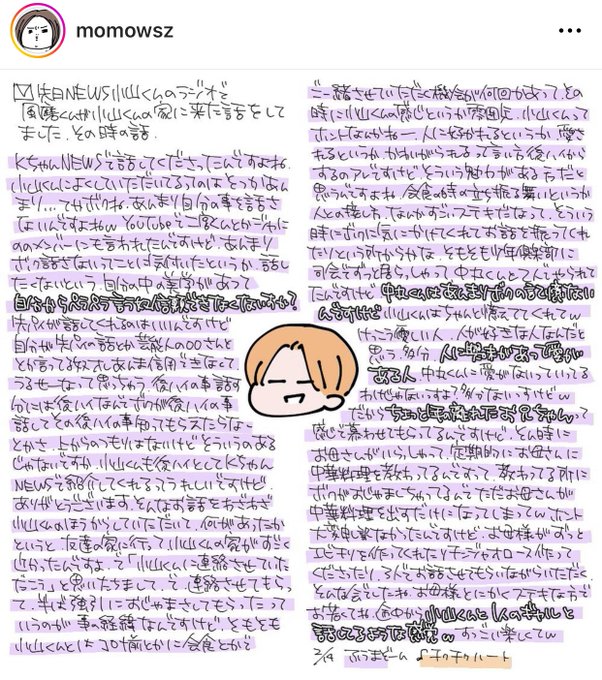 momowsz
先日NEWS小山くんのラジオで
風磨くんが小山くんの家に来た話をして
ました。その時の話。
KちゃんNEWSで話してくださったんですよね。
小山くんによくしていただいてるってのはそっかあん
まり…てかボクね、あんまり自分の事を話さ
ないんですよねw YouTubeで二宮くんとかジャに
のメンバーにも言われたんですけど、あんまり
ボク話さないってことに気付いたというか、話し
たくないという。自分の中の美学があって
自分からペラペラ言う奴信頼できなくないすか?
先パイが話してくれるのはいいんですけど
自分が先パイの話とか芸能人の〇〇さんと
とか言ってる奴オレあんま信用できなくて。
うるせーなって思っちゃう。後ハイの事話す
分には後ハイなんでボクが後ハイの事
話してその後ハイの事知ってもらえたらなー
とかさ。上からのつもりはないけどそういうのある
じゃないですか。小山くんも後ハイとしてKちゃん
NEWSで紹介してくれるってうれしいですけど。
ありがとうございます。そんなお話をわざわざ
小山くんのほうからしていただいて。何があったか
というと、友達の家に行って小山くんの家がすごく
近かったんですよ。で「小山くんに連絡させていた
だこう」と思いたちまして。で、連絡させてもらっ
て、半ば強引におじゃまさせてもらったって
いうのが事の経緯なんですけど。そもそも
小山くんとは コロナ前とかに会食とかで
ご一緒させていただく機会が何回かあって、その
時に小山くんの感じというか雰囲気。小山くんって
ホントなんかねー、人に好かれるというか、愛さ
れるというか、かわいがられるって言い方後ハイから
するのアレですけど、そういう魅力がある方だと
思うんですよね。会食の時の立ち振る舞いというか
人との接し方。なんかすごいステキだなって。そういう
時にボクに気にかけてくれてお話を振ってくれ
たりという所からかな。そもそも少年倶楽部に
司会でずっと居らっしゃって中丸くんと2人でやられて
たんですけど 中丸くんはあんまりボクの話聞かない
んですけど小山くんはちゃんと答えてくれてw
けっこう優しい人。人が好きなんだなと
思う。多分、人に興味があって愛が
ある人。中丸くんに愛がないっていってる
わけじゃないすよ?多分ないっすけどw
だからちょっと年の離れたお兄ちゃんって
感じで慕わせてもらってるんですけど、そん時に
お母さんがいらっしゃって。定期的にお母さんに
中華料理を教わってるんですって。教わってる所に
ボクがおじゃましちゃってるんでただお母さんが
中華料理を出すだけになってしまってwホント
大変申し訳なかったんですけど。お母様がずっと
エビチリを作ってくれたりチンジャオロース作たって
くださったり。3人でお話させてもらいながらいただく。
そんな会でしたね。お母様とにかくステキな方で
お若くてね。途中から小山くんと1人のギャルと
話してるような感覚w すっごい楽しくてw
2/14 ふうまぞーん ♪チクチクハート